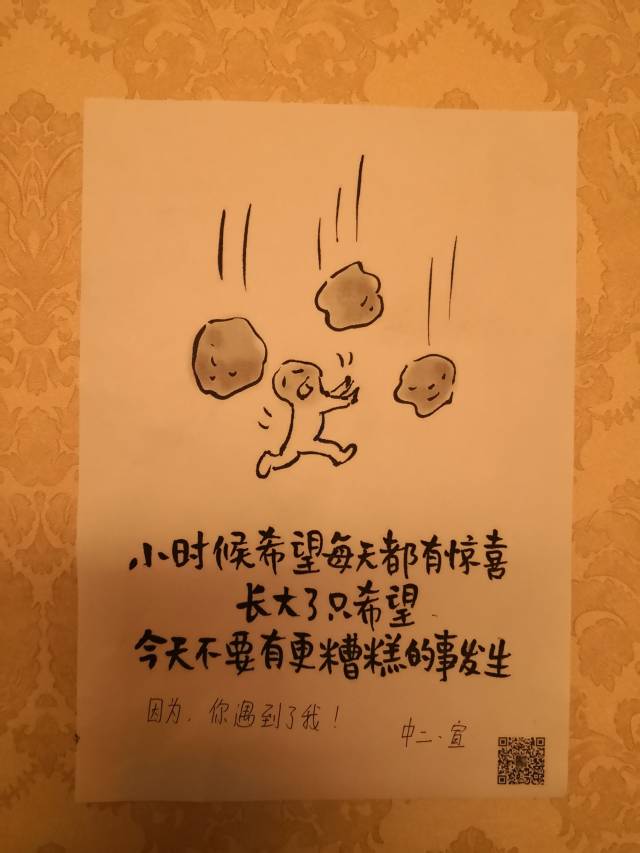 小时候希望每天都有惊喜
长大了只希望
今天不要有更糟糕的事发生
因为,你遇到了我!
中二·宣